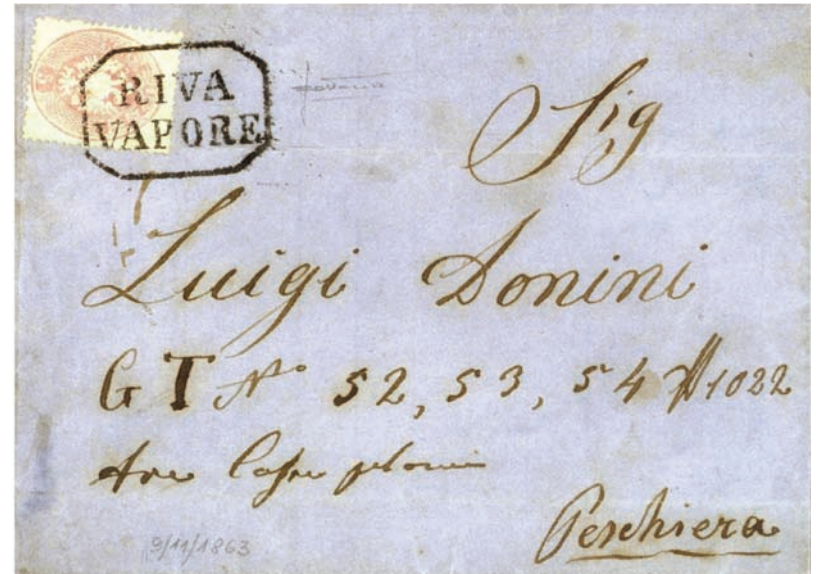 RIVA
VAPORE
Sig
Luigi Donini
G T N° 52, 53, 54 1022
tre
Peschiera
9/11/1863